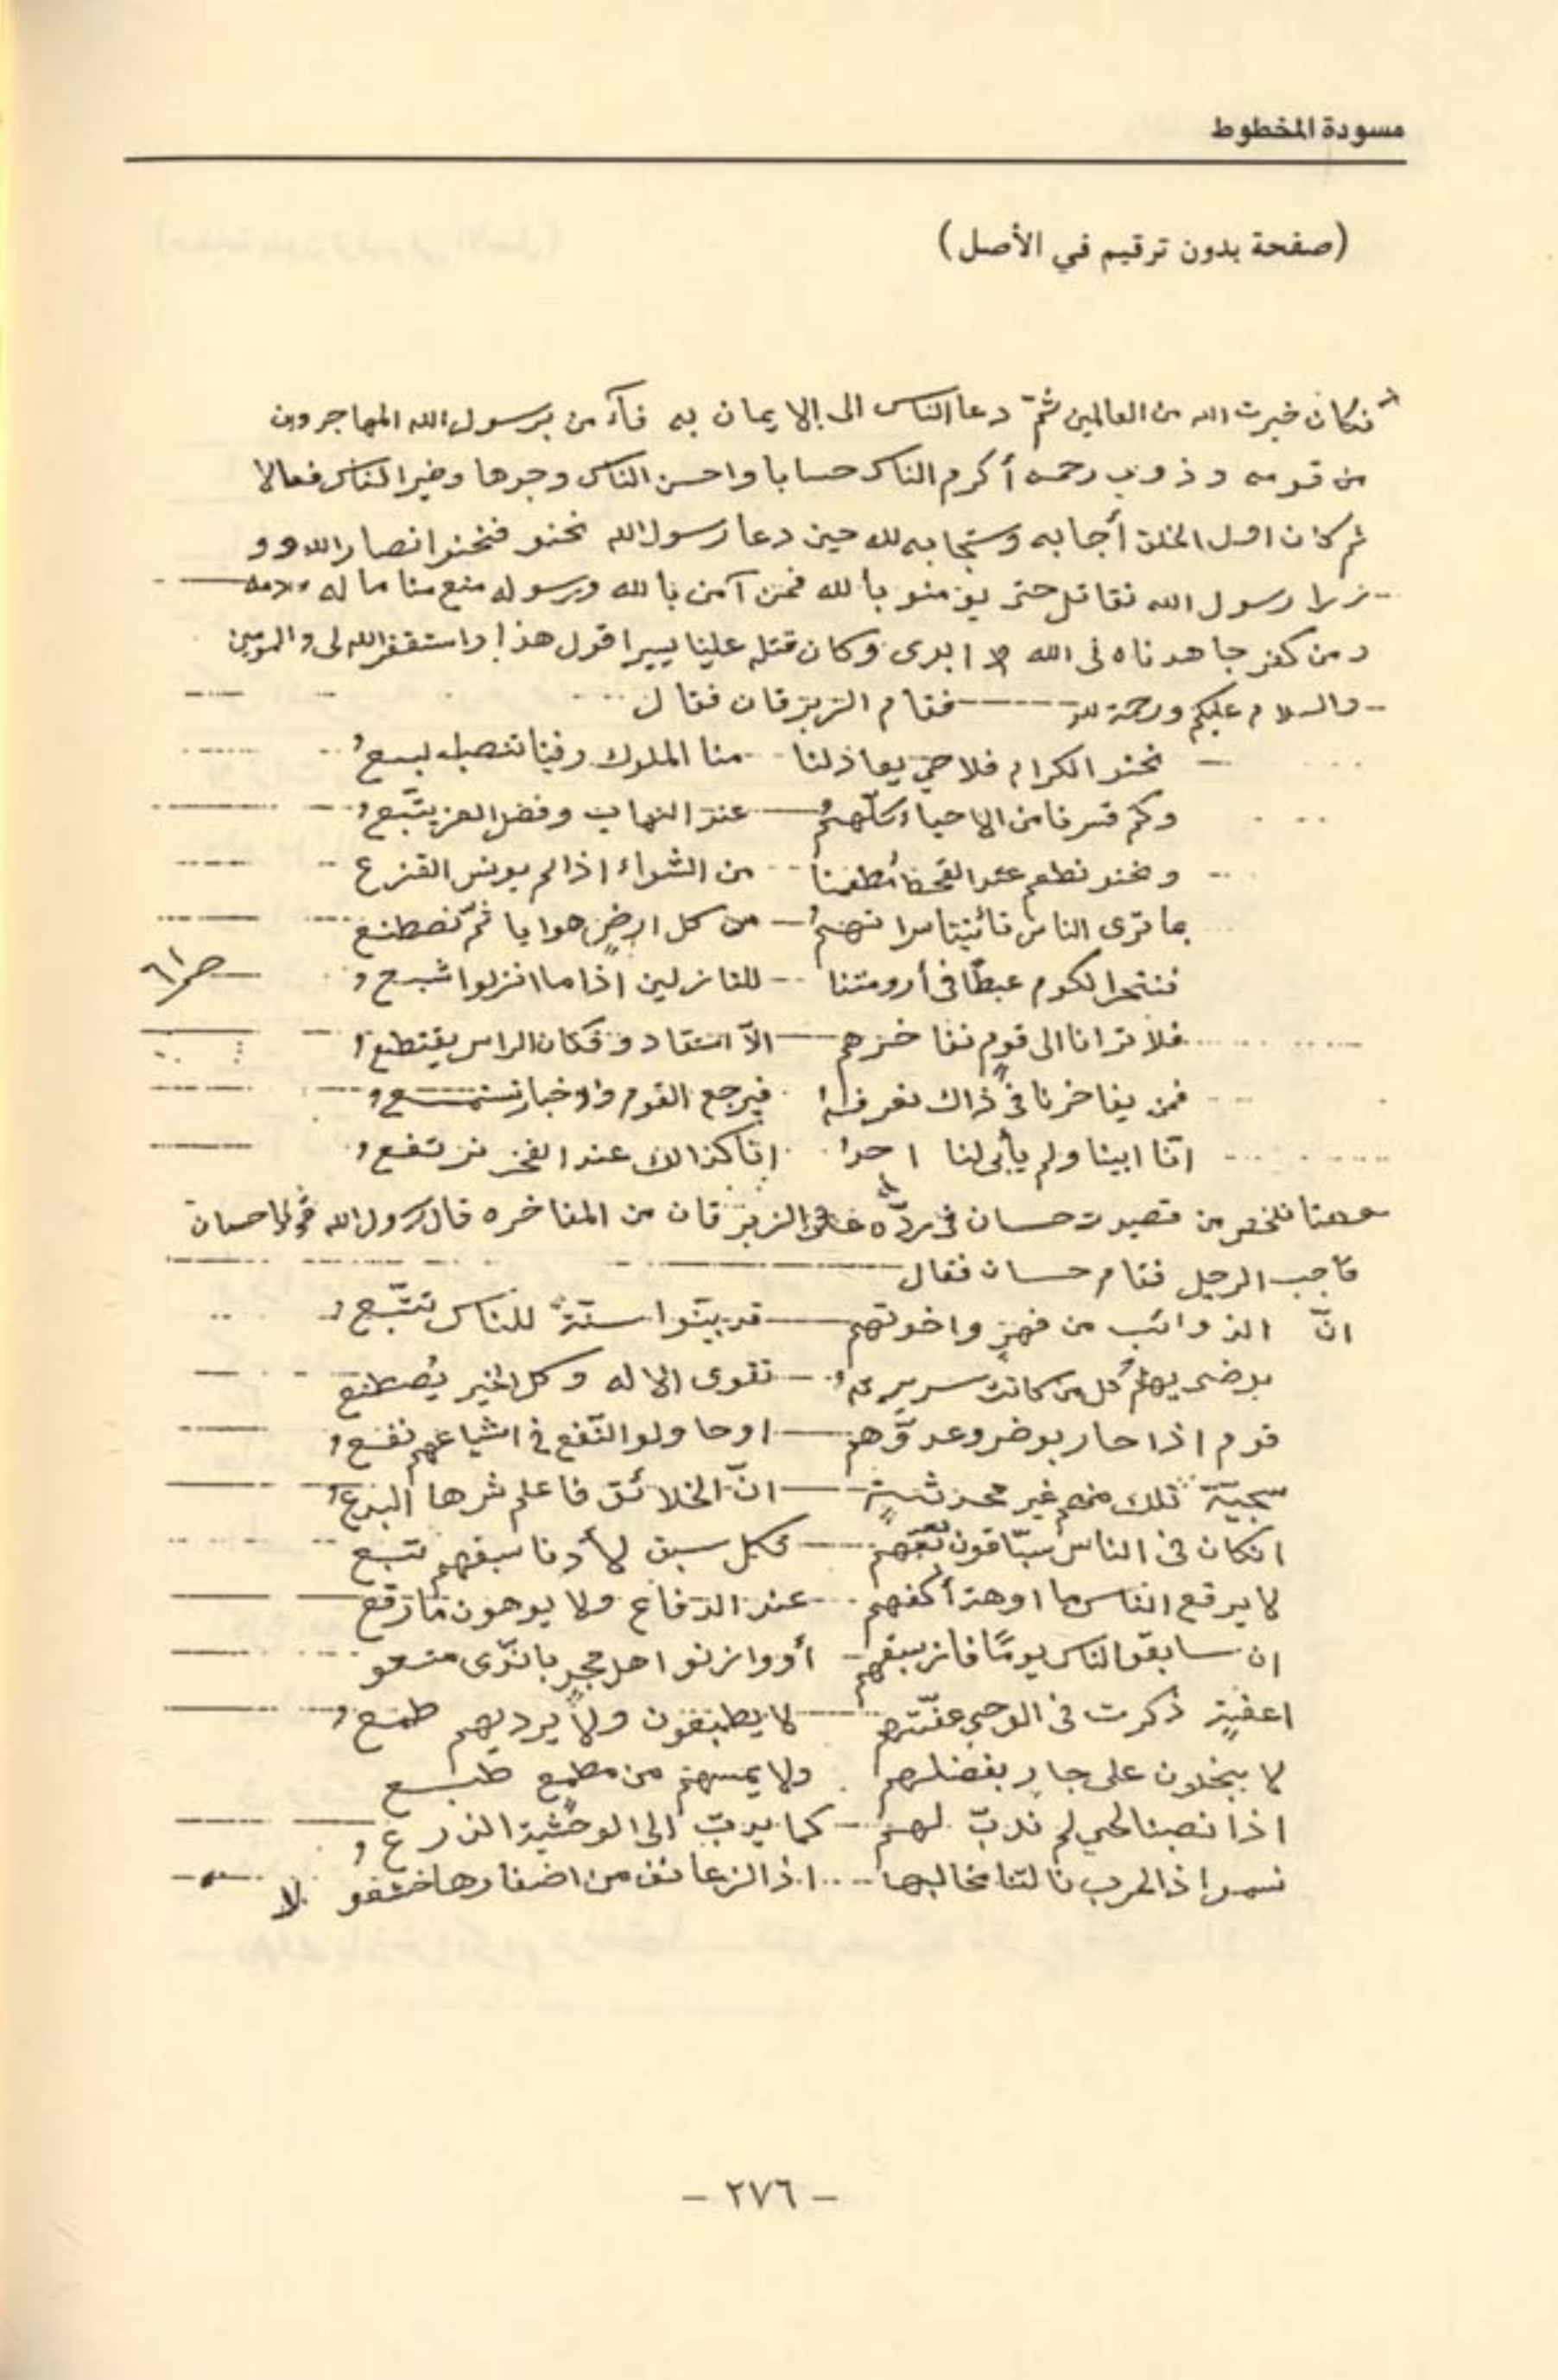 مسودة المخطوط
(صفحة بدون ترقيم في الأصل)
فكان خيرت الله من العالمين ثمّ دعا الناس الى الايمان به فآمن برسول الله المهاجرون
من قومه وذوي رحمه أكرم الناس حسابا واحسن الناس وجوها وخير الناس فعالا
ثم كان اول الخلق أجابه وستجابه لله حين دعا رسول الله نحنو فنحنو انصار الله وو
زرا رسول الله نقاتل حتى يؤمنو بالله فمن آمن بالله ورسوله منع منا ماله ودمه
ومن كفر جاهدناه فى الله ابدى وكان قتله علينا يسيرا قول هذا واستقفر الله لى والمومين
والسلام عليكم ورحمة الله فقام الزبرقان فقال
نحنو الكرام فلا حيّ يعاذلنا -- منا الملوك وفينا تنصب لبيع
وكم قسرنا من الاحياء كلّهمُ --- عند النهاب وفضل العز يتّبع
ونحنو نطعم عند القحط مُطعمنا -- من الشواء اذا لم يونس القزع
بما ترى الناس تأتينا سراتهمُ -- من كل ارضٍ هوايا ثمّ نصطنع
فننحر الكوم عبطًا فى أرومتنا -- للنازلين اذا ما انزلوا شبع
ص ٦١
فلا ترانا الى قومٍ نفاخرهم --- الاّ استقادو فكان الراس يقتطع
فمن يفاخرنا فى ذاك نعرفه فيرجع القوم والاخبار تستمع
انّا ابينا ولم يأبى لنا احد انّا كذالك عند الفخر نرتفع
وهنا نلخص من قصيدت حسان فى ردّه على الزبرقان من المفاخره قال رسول الله قم يا حسان
فأجب الرجل فقام حسان فقال
انّ الذوائب من فهرٍ واخوتهم --- قد بيّنوا سنّةً للناس تتّبع
يرضى بهم كل من كانت سريرته -- تقوى الاله وكل الخير يُصطنع
قوم اذا حاربو ضرو عدوّهم --- او حاولو النّفع فى اشياعهم نفعو
سجيّة تلك منهم غير محدثةٍ --- انّ الخلائق فاعلم شرها البدع
انكان فى الناس سبّاقون بعدهم --- فكل سبق لأدنا سبقهم تبع
لا يرقع الناس ما اوهت أكفهم -- عند الدفاع ولا يوهون ما رقع
ان سابقو الناس يومًا فاز سبقهم -- أو وازنو اهل مجدٍ بالندّى متعو
اعفةٍ ذكرت فى الوحي عفّتهم --- لا يطبعون ولا يرديهم طمع
لا يبخلون على جارٍ بفضلهم ولا يمسهم من مطمع طبع
اذا نصبنا لحي لم ندبّ لهم -- كما يدبّ الى الوحشية الذرع
نسموا ذا الحرب نالتنا مخالبها -- اذا الزعانف من اضفارها خشعو
لا
- ٢٧٦ -